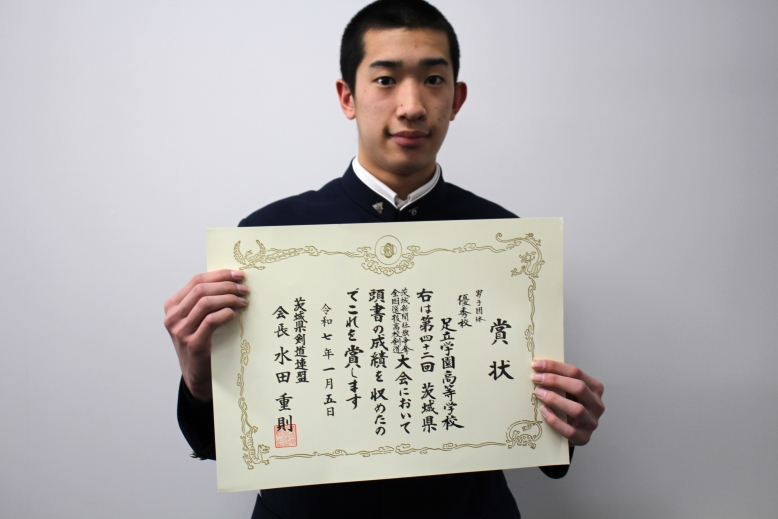 賞状
男子団体
優秀校
足立学園高等学校
右は第四十三回 茨城県
茨城新聞社旗争奪
全国選抜高校剣道
大会において
頭書の成績を収めたの
でこれを賞します
令和七年一月五日
茨城県剣道連盟
会長 水田重則